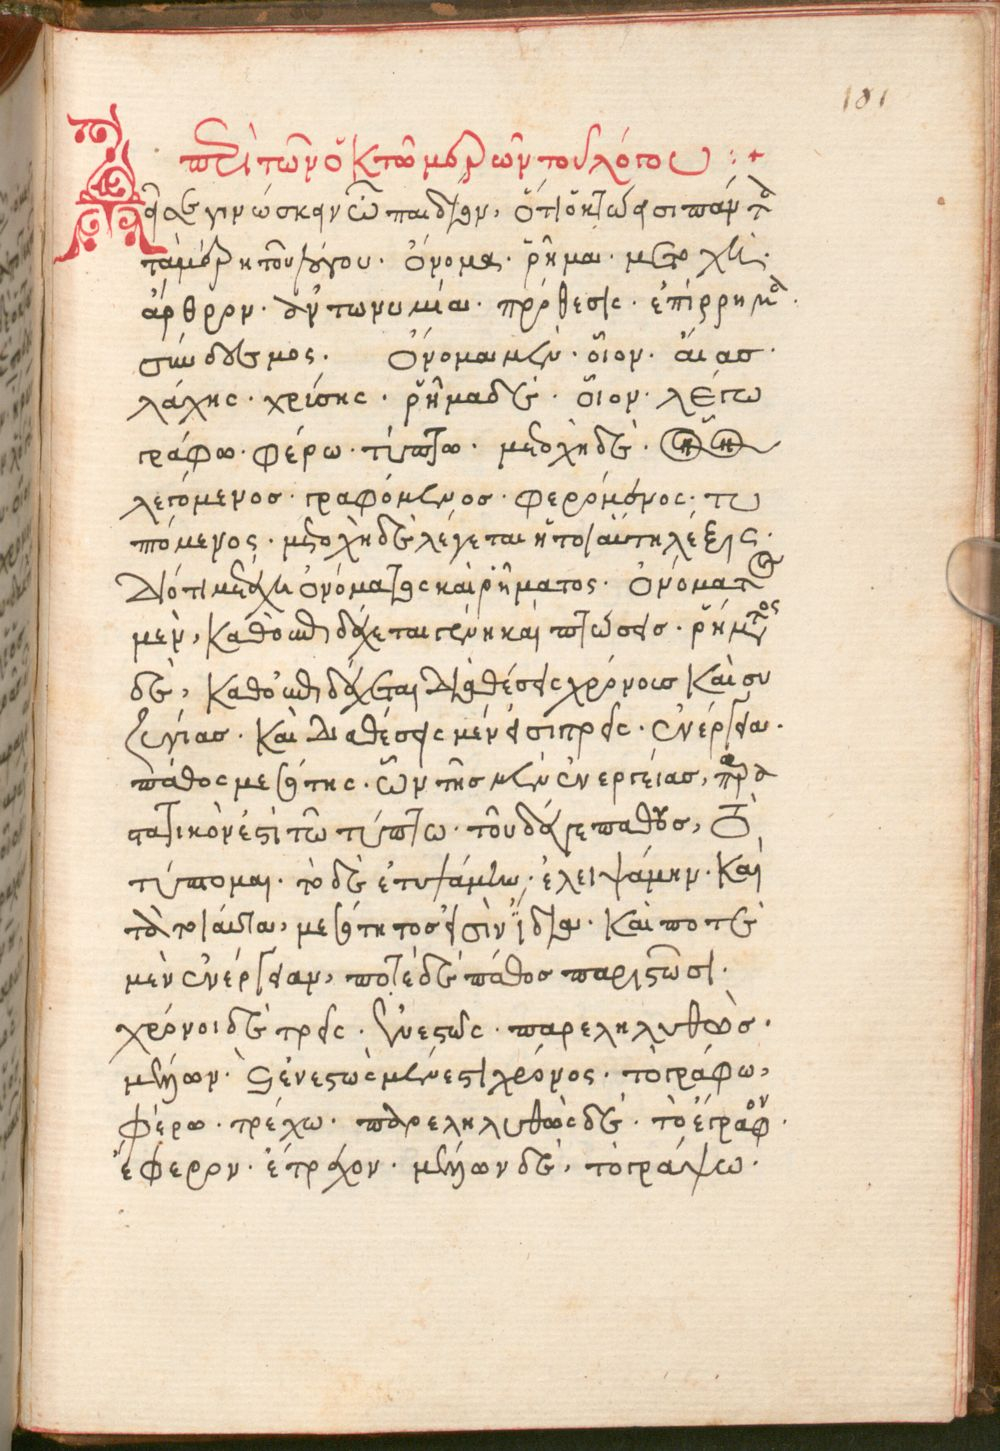 181
περὶ τῶν ὀκτὼ μερῶν τοῦ λόγου :+
Δεῖ σε γινώσκειν ὦ παιδίον, ὅτι ὀκτώ εἰσι πάντα
τὰ μέρη τοῦ λόγου. ὄνομα. ῥῆμα. μετοχή.
ἄρθρον. ἀντωνυμία. πρόθεσις. ἐπίρρημα.
σύνδεσμος. ὄνομα μὲν. οἷον. αἴας.
λάχης. χρύσης. ῥῆμα δὲ. οἷον. λέγω
γράφω. φέρω. τύπτω. μετοχὴ δὲ.
λεγόμενος. γραφόμενος. φερόμενος. τυ
πόμενος. μετοχὴ δὲ λέγεται ἡ τοιαύτη λέξις.
διότι μετέχει ὀνόματος καὶ ῥήματος. ὀνόματος
μὲν, καθὸ δέχεται γένη καὶ πτώσεις. ῥήματος
δὲ, καθὸ δέχεται διαθέσεις χρόνους καὶ συ
ζυγίας. καὶ διαθέσεις μέν εἰσι τρεῖς. ἐνέργεια.
πάθος μεσότης. ὧν τῆς μὲν ἐνεργείας, παρα
τατικόν ἐστι τῶ τύπτω. τοῦ δέ γε πάθους, τὸ
τύπομαι. τὸ δὲ ἐτυψάμην. ἐλειψάμην. καὶ
τὰ τοιαῦτα, μεσότητος εἰσὶν ἴδια. καὶ ποτὲ
μὲν ἐνέργειαν, ποτὲ δὲ πάθος παριστῶσι.
χρόνοι δὲ τρεῖς. ἐνεστώς. παρεληλυθὼς.
μέλλων. ὁ ἐνεστὼς μέν ἐστι χρόνος. τὸ γράφω,
φέρω. τρέχω. παρεληλυθὼς δὲ. τὸ ἔγραφον.
ἔφερον. ἔτρεχον. μέλλων δὲ, τὸ γράψω.